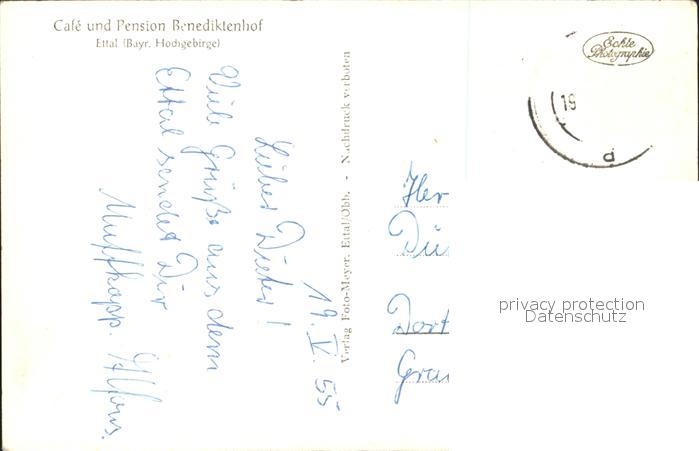 Café und Pension Benediktenhof
Ettal (Bayr. Hochgebirge)
Echte
Photographie
19
19. V. 55
Lieber Dieter!
Viele Grüße aus dem
Ettal sendet Dir
Alfons.
Verlag Foto-Meyer, Ettal/Obb. - Nachdruck verboten
Her
Dort
privacy protection
Datenschutz